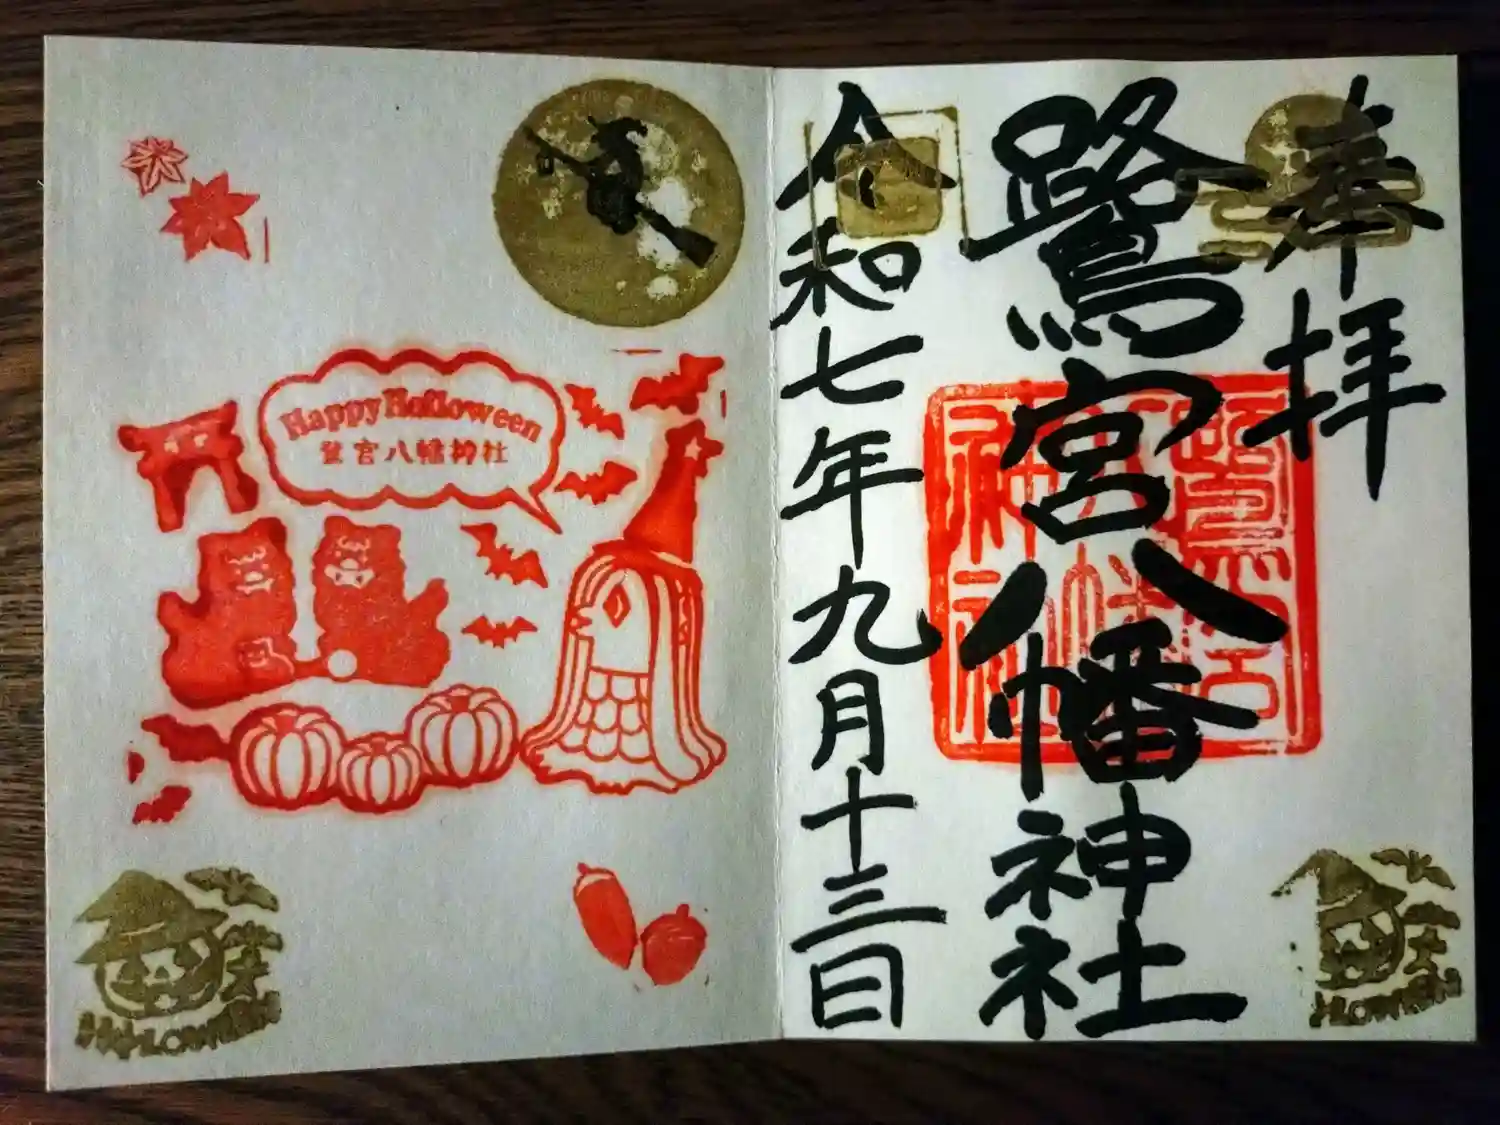 奉拝
鷺宮八幡神社
令和七年九月十三日
鷺宮
八幡
神社
Happy Halloween
鷺宮八幡神社
HALLOWEEN